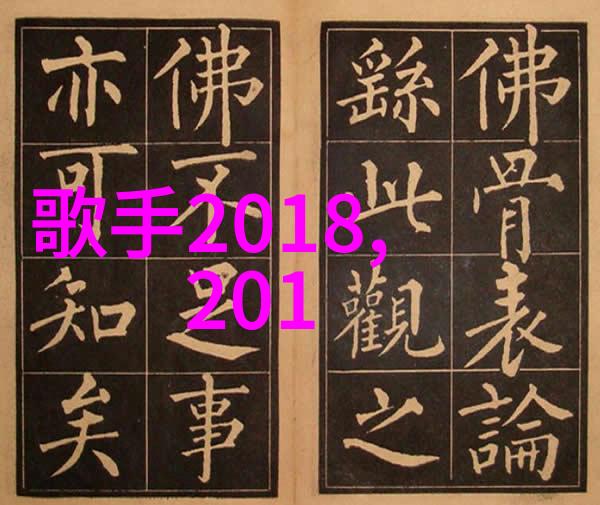 佛骨表論
繇此觀之
佛不足事
亦可知矣
歌手2018,
201